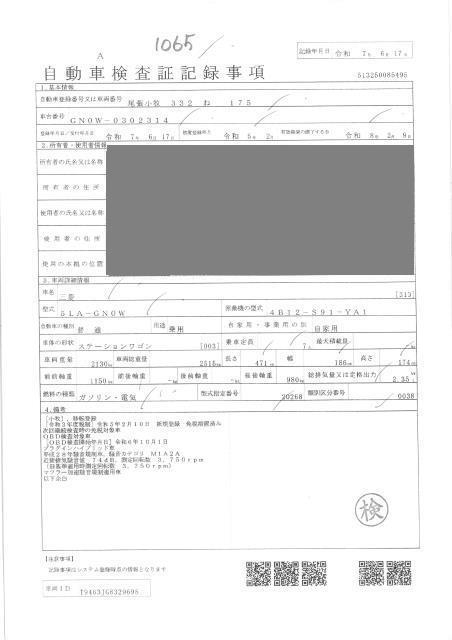 1065
A
記録年月日 令和 7年 6月17日
自動車検査証記録事項
513250085495
1.基本情報
自動車登録番号又は車両番号 尾張小牧 332 ね 175
車台番号 GN0W-0302314
登録年月日/交付年月日 令和 7年 6月17日 初度登録年月 令和 5年 2月 有効期間の満了する日 令和 8年 2月 9日
2.所有者・使用者情報
所有者の氏名又は名称
所有者の住所
使用者の氏名又は名称
使用者の住所
使用の本拠の位置
3.車両詳細情報
車名 三菱 [313]
型式 5LA-GN0W 原動機の型式 4B12-S91-YA1
自動車の種別 普通 用途 乗用 自家用・事業用の別 自家用
車体の形状 ステーションワゴン [003] 乗車定員 7人 最大積載量
車両重量 2130kg 車両総重量 2515kg 長さ 471cm 幅 186cm 高さ 174cm
前前軸重 1150kg 前後軸重 後前軸重 後後軸重 980kg 総排気量又は定格出力 2.35
燃料の種類 ガソリン・電気 型式指定番号 20268 類別区分番号 0038
4.備考
[小牧],移転登録
[令和3年度税制]令和5年2月10日 新規登録 免税措置済み
次回継続検査時の免税対象車
OBD検査対象車
[OBD検査開始年月日]令和6年10月1日
プラグインハイブリッド車
平成28年騒音規制車,騒音カテゴリ M1A2A
近接排気騒音値 74dB,測定回転数 3,750rpm
マフラー加速騒音規制適用車
以下余白
検
【注意事項】
記録事項はシステム登録時点の情報となります
車両ID T9463JG8329695